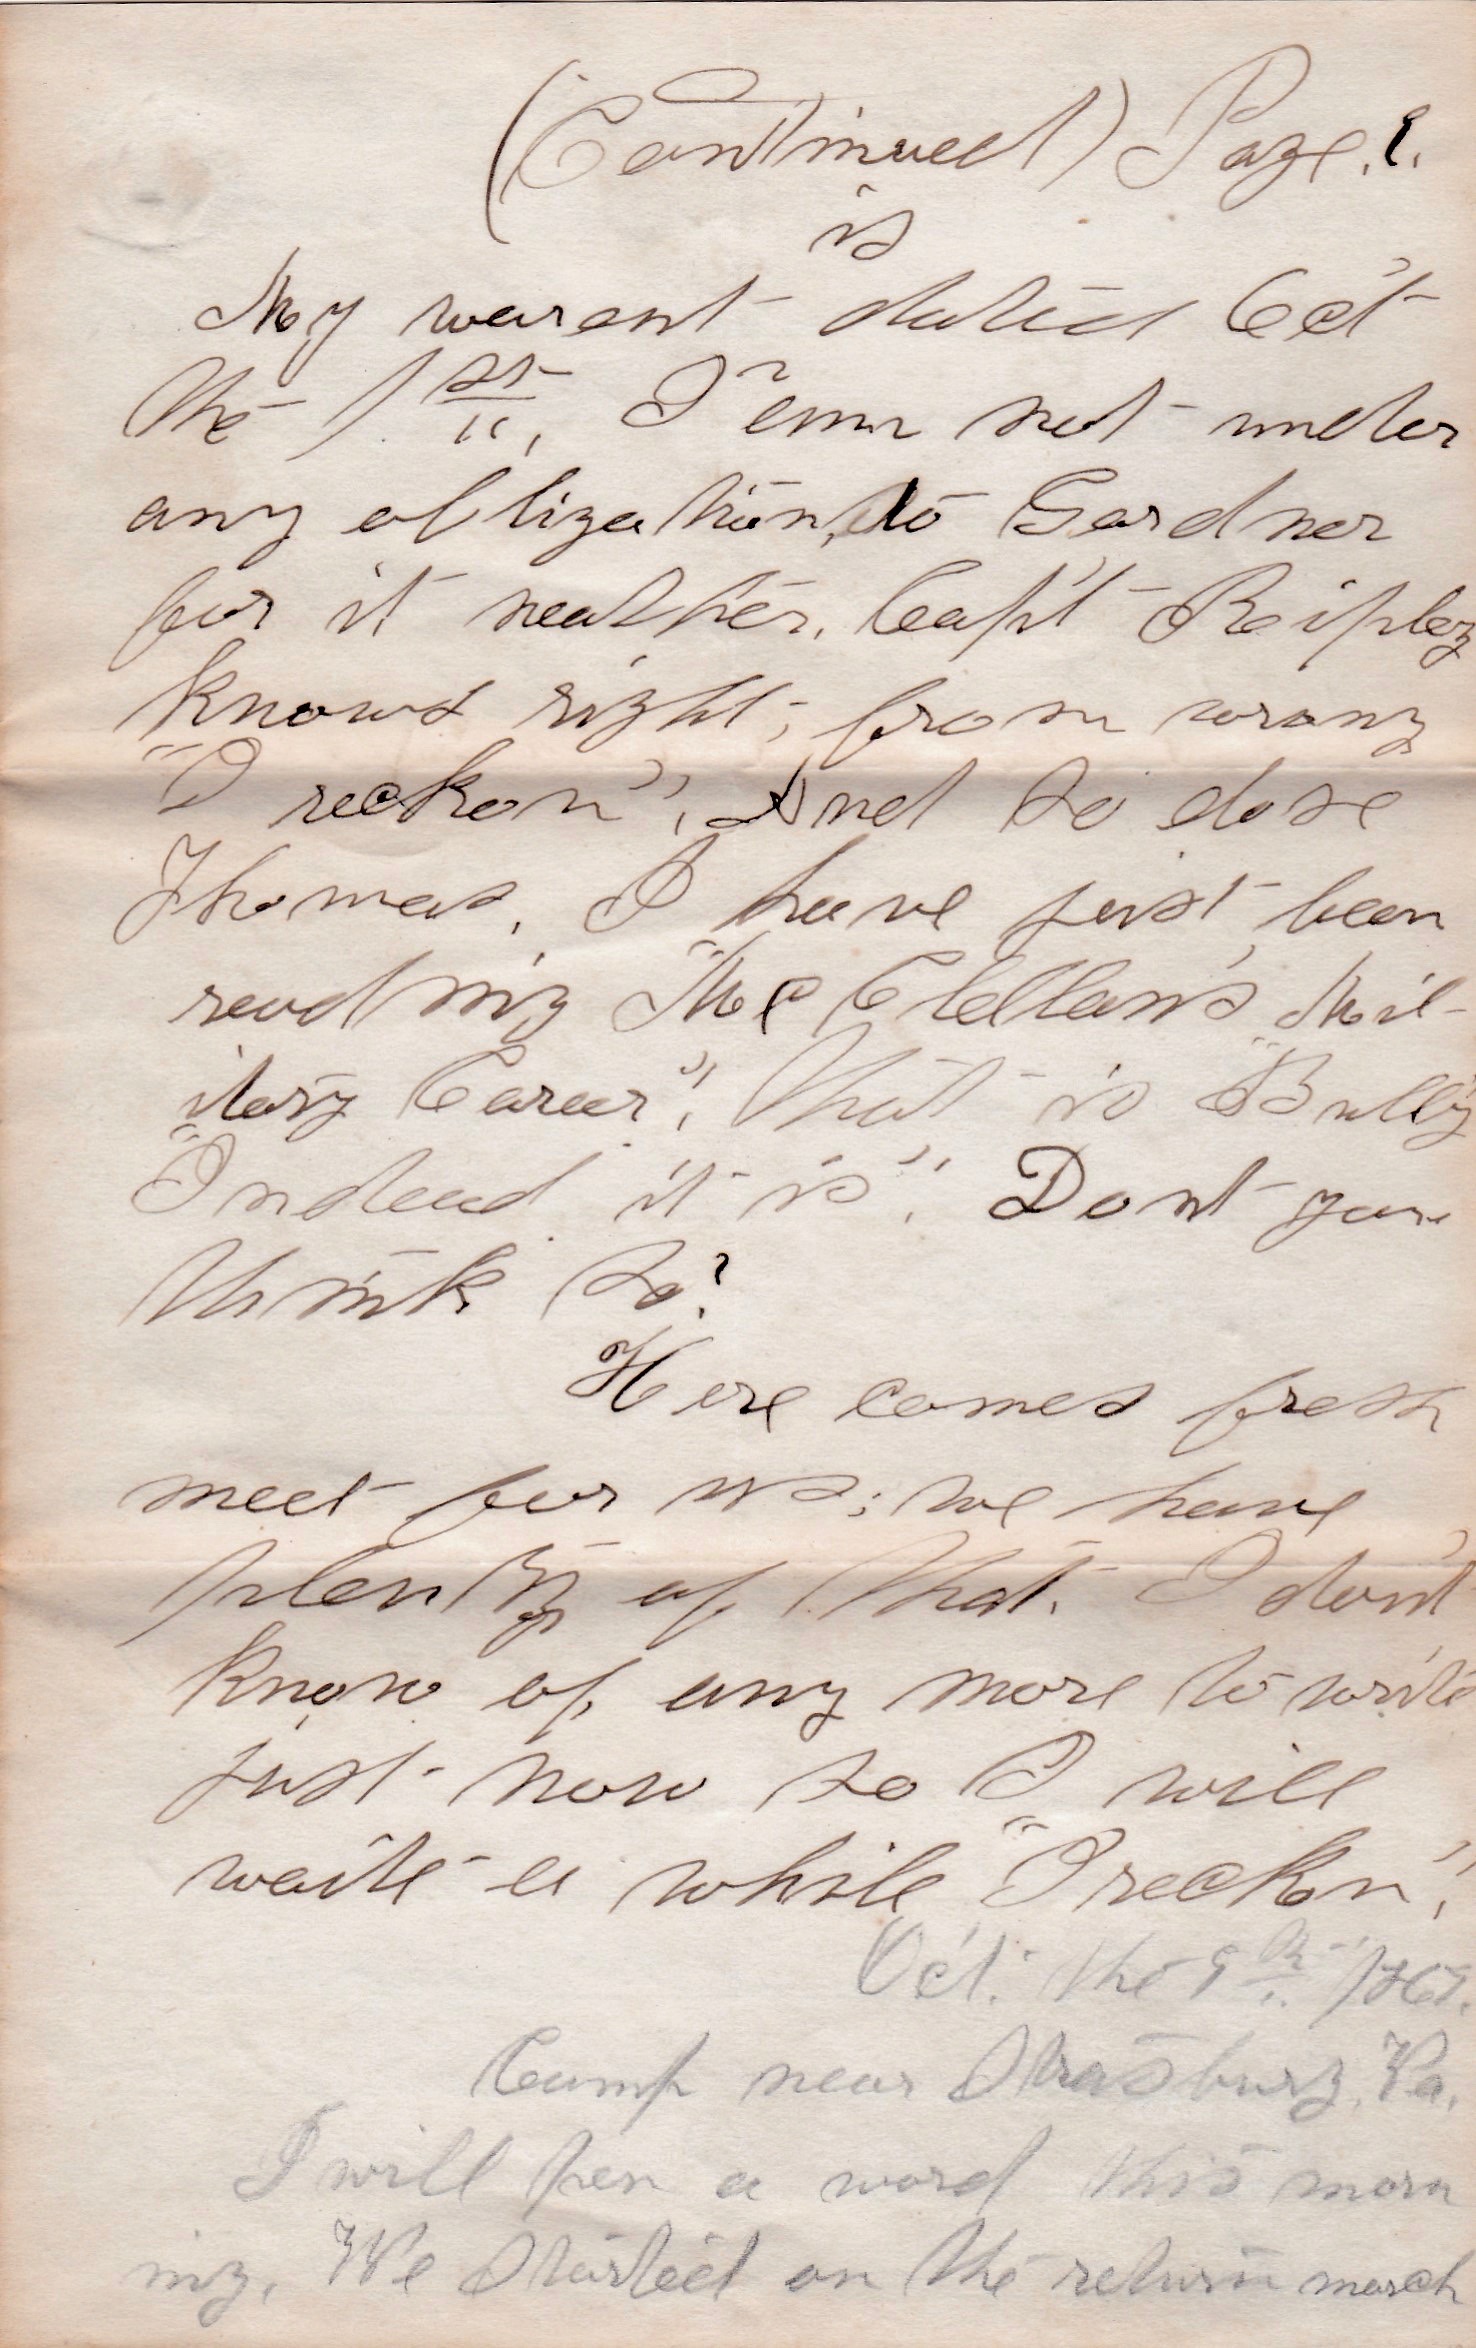 (Continued) Page. 1.
is
My warant dated Oct
the 1st. I am not under
any obligation, to Gardner
for it neather. Capt Reipley
knows right, from wrong
"I reckon". And so dose
Thomas. I have just been
reading "McClellan's Mil-
itary Career". That is "Bully"
"Indead it is". Dont you
think so?
Here comes fresh
meet for us; we have
plenty of that. I don't
know of any more to write
just now so I will
waite a while "I reckon".
Oct. the 9th /64.
Camp near Strasburg, Va.
I will pen a word this morn
ing. We started on the return march